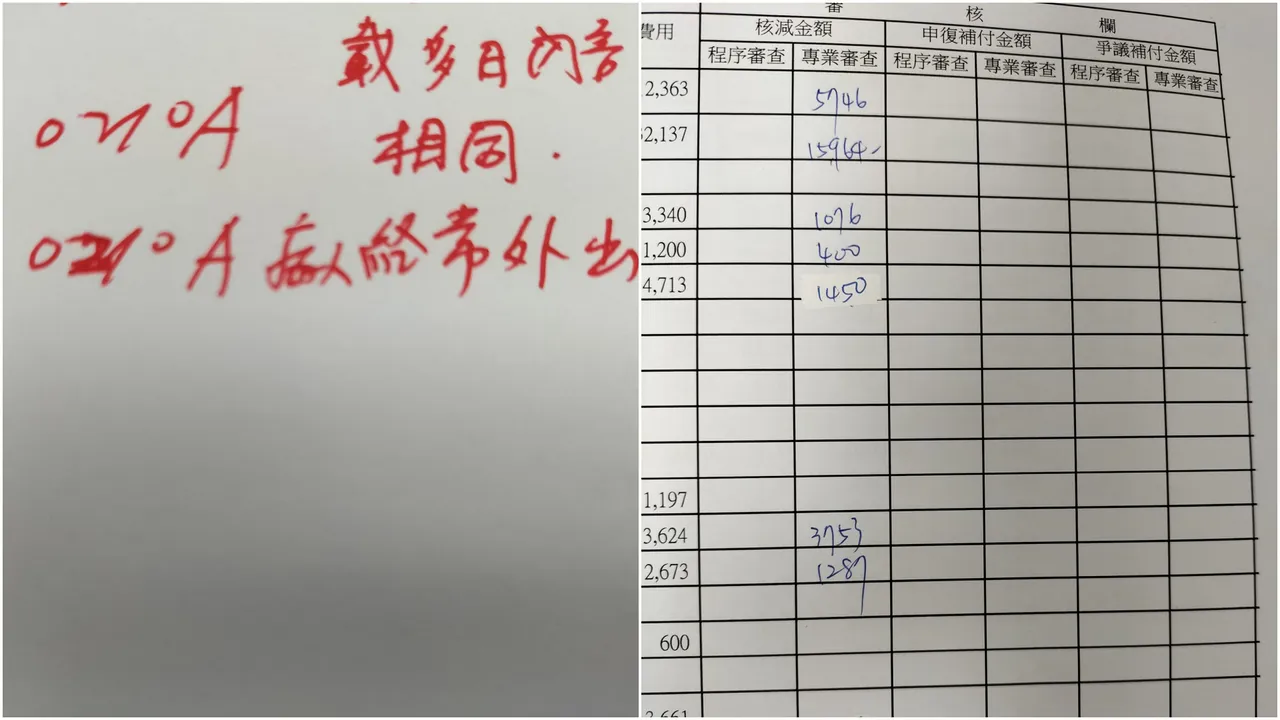 載多日內容
0210A
相同.
0210A 病人終常外出
審 核 欄
費用 核減金額 申復補付金額 爭議補付金額
程序審查 專業審查 程序審查 專業審查 程序審查 專業審查
2,363 5746
32,137 15964-
3,340 1076
1,200 400
4,713 1450
1,197
3,624 3753
2,673 1287
600